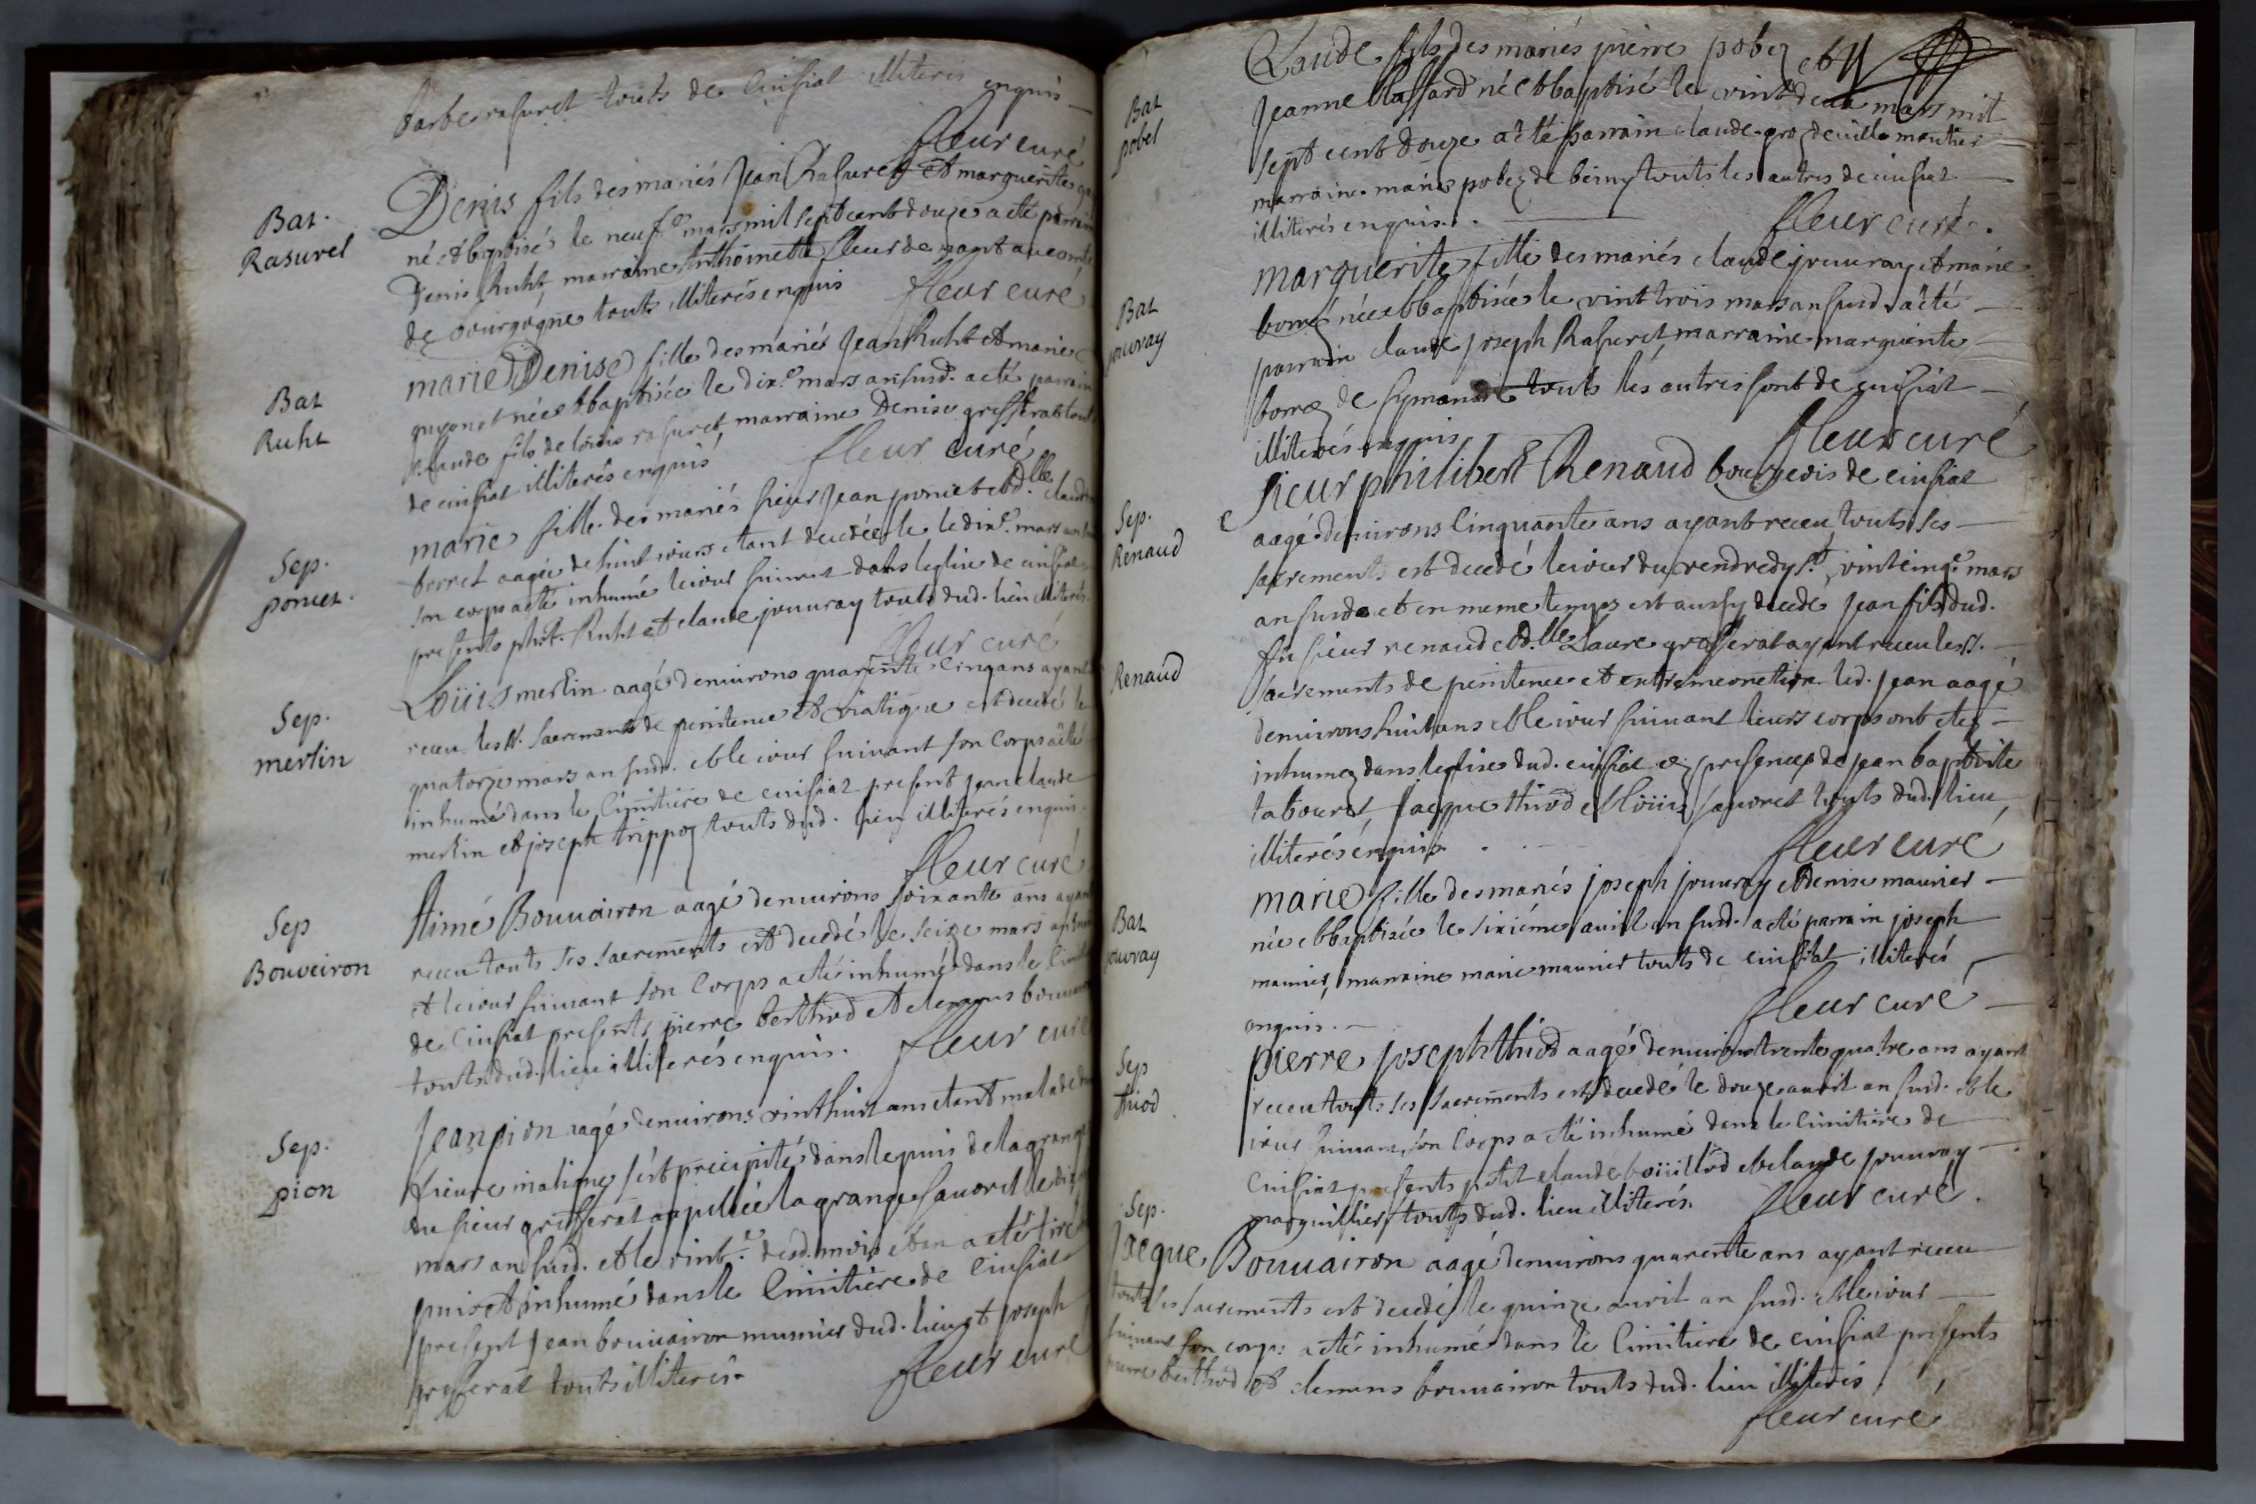 barbe rasurel touts de Cuisiat illiteris enquis
fleur curé
Bat.
Rasurel
Denis fils des mariés Jean Rasurel et marguerite
né et baptisés le neuf.e mars mil sept cent douze a eté parrain
Denis Ruht, marraine Anthoinette fleur de
de bourgogne touts illiterés enquis fleur curé
Bat
Ruht
marie Denise fille des mariés Jean Ruht et marie
guyonet née et baptisée le dix.e mars an susd. a eté parrain
claude fils de loüis rasurel marraine Denise grifferat touts
de cuisiat illiterés enquis fleur curé
Sep.
poncet.
marie fille des mariés sieur Jean poncet et d.lle claudine
borret aagée de huit iours etant decedée le dix.e mars an
son corps a eté inhumé le iour suiuant dans leglise de cuisiat
presents phil. Ruht et claude jouuray touts dud. lieu illiterés
fleur curé
Sep.
merlin
Loüis merlin aagé denuirons quarente cinq ans ayant
receu les st. sacrements de penitence et viatique est decedé le
quatorze mars an susd. et le iour suiuant son Corps a eté
inhumé dans le Cimitiere de cuisiat present jean claude
merlin et joseph trippoz touts dud. lieu illiterés enquis.
fleur curé
Sep
Bouveiron
Aimé Bouuairon aagé denuirons soixante ans ayant
receu touts ses sacrements est decedé le seize mars an susd.
et le iour suiuant son Corps a eté inhumé dans le Cimit
de Cuisiat presents pierre berthod et clemens bouuairon
touts dud. lieu illiterés enquis. fleur curé
Sep.
pion
Jean pion aagé denuirons vint huit ans etant malade
fieure maligne s'est precipité dans le puis de la grange
du sieur grifferat appellée la grange sauoret le dix
mars an susd. et le vint.e desd. mois et an a eté tiré
puis et inhumé dans le Cimitiere de Cuisiat
present Jean bouuairon musnier dud. lieu et Joseph
grifferat touts illiterés. fleur curé
Bat
pobel
Claude fils des mariés pierre pobez et
Jeanne Chassard né et baptisé le vint deux mars mil
sept cent douze a eté parrain claude groz de uille moutier
marraine marie pobez de beiny touts les autres de cuisiat
illiterés enquis. fleur curé.
Bat
jouvray
marguerite fille des mariés claude jouuray et marie
borrez née et baptisée le vint trois mars an susd. a eté
parrain claude joseph Rasurel marraine marguerite
borrez de symandre touts les autres sont de cuisiat
illiterés enquis fleur curé
Sep.
Renaud
sieur philibert Renaud bourgeois de cuisiat
aagé denuirons Cinquante ans ayant receu touts ses
sacrements est decedé le iour du vendredy s.t vint cinq.e mars
an susd. et en meme temps est aussy decedé Jean fils dud.
Renaud
fu sieur renaud et d.lle Laure grifferat ayant receu les st.
sacrements de penitence et extremeonction led. Jean aagé
denuirons huit ans et le iour suiuant leurs corps ont etez
inhumez dans leglise dud. cuisiat ez presences de jean baptiste
tabouret, jacque thiod et loüis sauoret touts dud. lieu
illiterés enquis. fleur curé
Bat
jouvray
marie fille des mariés joseph jouuray et denise maunier
née et baptisée le sixiéme auril an susd. a eté parrain joseph
maunier, marraine marie maunier touts de cuisiat illiterés
enquis. fleur curé
Sep
thiod
pierre joseph thiod aagé denuirons trente quatre ans ayant
receu touts ses sacrements est decedé le douze auril an susd. et le
iour suiuant, son Corps a eté inhumé dans le Cimitiere de
Cuisiat presents petit claude boüillod et claude jouuray
marguillier touts dud. lieu illiterés. fleur curé.
Sep.
Jacque Bouuairon aagé denuirons quarente ans ayant receu
touts ses sacrements est decedé le quinze auril an susd. et le iour
suiuant son corps a eté inhumé dans le Cimitiere de cuisiat presents
pierre berthod et clemens bouuairon touts dud. lieu illiterés
fleur curé